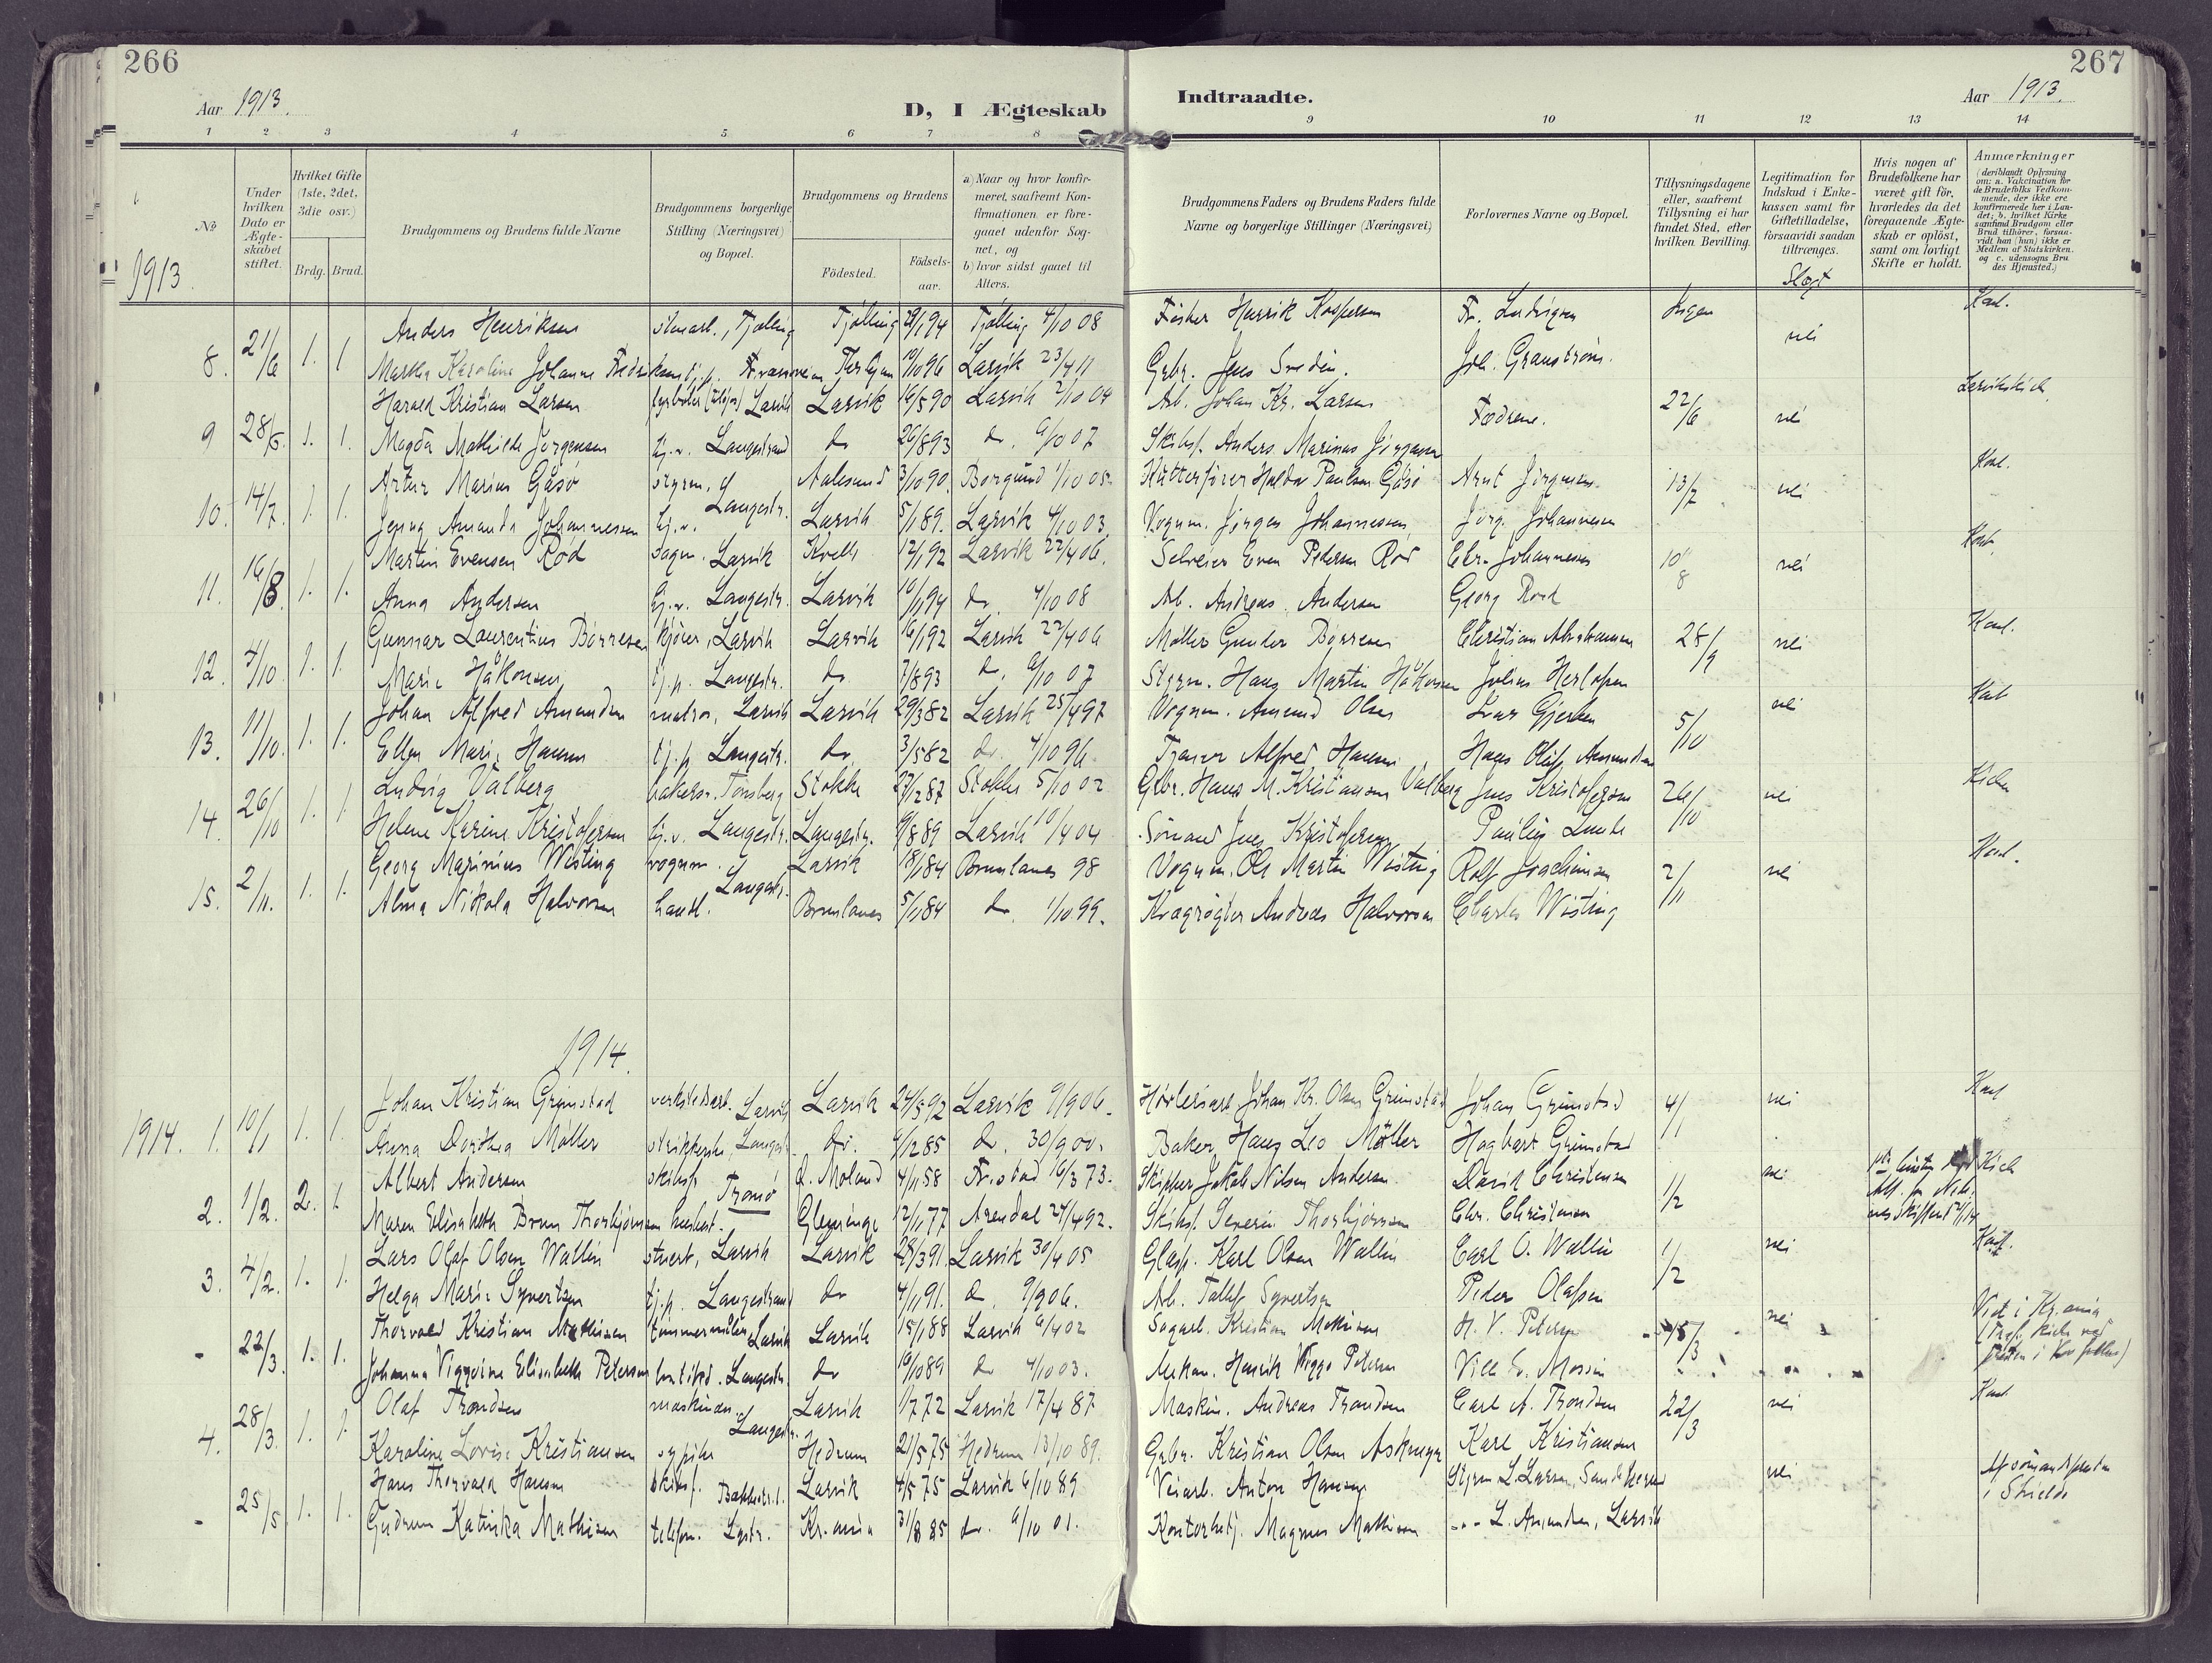 266
267
Aar 1913.
D, I Ægteskab
Indtraadte.
Aar 1913.
1 2 3 4 5 6 7 8 9 10 11 12 13 14
No
Under hvilken Dato er Ægteskabet stiftet.
Hvilket Gifte (1ste, 2det, 3die osv.)
Brdg. Brud.
Brudgommens og Brudens fulde Navne
Brudgommens borgerlige Stilling (Næringsvei) og Bopæl.
Brudgommens og Brudens
Födested.
Födselsaar.
a) Naar og hvor konfirmeret, saafremt Konfirmationen er foregaaet udenfor Sognet, og
b) hvor sidst gaaet til Alters.
Brudgommens Faders og Brudens Faders fulde Navne og borgerlige Stillinger (Næringsvei)
Forlovernes Navne og Bopæl.
Tillysningsdagene eller, saafremt Tillysning ei har fundet Sted, efter hvilken Bevilling.
Legitimation for Indskud i Enkekassen samt for Giftetilladelse, forsaavidt saadan tiltrænges.
Slegt
Hvis nogen af Brudefolkene har været gift för, hvorledes da det foregaaende Ægteskab er oplöst, samt om lovligt Skifte er holdt.
Anmærkninger
(deriblandt Oplysning om: a. Vakcination for de Brudefolks Vedkommende, der ikke ere konfirmerede her i Landet; b. hvilket Kirkesamfund Brudgom eller Brud tilhörer, forsaavidt han (hun) ikke er Medlem af Statskirken, og c. udensogns Brudes Hjemsted.)
1913.
8. 21/6 1. 1 Anders Henriksen Tjølling Tjølling 29/1 94 Tjølling 4/10 08 Fisker Henrik Kaspersen Fr. Ludvigsen Ingen nei
Martha Karoline Johanne Fredriksen 96 Larvik 23/4 11 Grbr. Jens Joh. Granström.
9 28/6 1. 1. Harald Kristian Larsen Larvik Larvik 16/5 90 Larvik 2/10 04 Arb. Johan Kr. Larsen Fædrene. 22/6 nei
Magda Mathilde Jørgensen hj.v. Langestrand do 26/8 93 do. 6/10 07 Skibsf. Anders Marinus Jörgensen
10. 14/7. 1. 1. Artur Marius Gåsø styrm. Langestr. Aalesund 3/10 90. Borgund 1/10 05. Kutterfører Paulsen Gåsø Arnt Jörgensen 13/7 nei
Jenny Amanda Johannessen hj.v. Larvik 5/1 89. Larvik 4/10 03 Vognm. Jørgen Johannessen Jörg. Johannesen
11. 16/8. 1. 1. Martin Evensen Rød sagm. Larvik Kvelle 12/1 92 Larvik 22/4 06. Selveier Even Pedersen Rød Chr. Johannessen 10/8 nei
Anna Andersen hj.v. Langestr. Larvik 94 do. 4/10 08 Arb. Andreas Andersen Georg Rød
12. 4/10. 1. 1. Gunnar Laurentius Börresen kjører, Larvik Larvik 16/1 92 Larvik 22/4 06 Møller Gunder Börresen Christian Abrahamsen 28/9 nei
Marie Håkonsen tj.p. Langestr. do. 7/8 93 do. 6/10 07 Styrm. Hans Martin Håkonsen Julius Herlofsen
13. 11/10. 1. 1. Johan Alfred Amundsen matros, Larvik Larvik 29/3 82 Larvik 25/4 97 Vognm. Amund Olsen Gjerken 5/10 nei
Ellen Marie Hansen tj.p. Langestr. do. 3/5 82 do. 4/10 96. Alfred Hansen Hans Olaf Amundsen
14. 26/10 1. 1. Ludvig Valberg bakersv. Tønsberg Stokke 27/12 87 Stokke 5/10 02 Grbr. Hans M. Kristiansen Valberg Jens Kristofersen 26/10 nei
Helene Karine Kristofersen hj.v. Langestr. Langestr. 9/8 89 Larvik 10/4 04 Sömand Jens Kristofersen Paulus Lunde
15. 2/11. 1. 1. Georg Marinius Wisting vognm. Langestr. Larvik 84 Brunlanes 98 Vognm. Ole Martin Wisting Rolf Joachimsen 2/11 nei
Alma Nikola Halvorsen handl. Brunlanes 5/11 84 do. 1/10 99. Kvægrøgter Andreas Halvorsen Charles Wisting
1914.
1914. 1. 10/1 1. 1. Johan Kristian Grimstad verkstedarb. Larvik Larvik 24/5 92 Larvik 9/9 06. Høvleriarb. Johan Kr. Olsen Grimstad Johan Grimstad 4/1 nei
Anna Dorthea Møller Langestr. do. 85 do. 30/9 00. Baker Hans Leo Møller Hagbart Grimstad
2. 1/2. 2. 1. Albert Andersen skibsf. Tromø Ø. Moland 4/11 58 Fr.stad 16/3 73. Skipper Jakob Nilsen Andersen David Christensen 1/2 nei
Maren Elisabeth Brun Thorbjørnsen husbest. Glemminge 12/11 77 Arendal 24/4 92. Skibsf. Severin Thorbjörnsen Chr. Christensen
3. 4/2. 1. 1. Lars Olaf Olsen Wallin stuert, Larvik Larvik 28/3 91 Larvik 30/4 05 Glasp. Karl Olsen Wallin Carl O. Wallin 1/2 nei
Helga Marie Syvertsen tj.p. Langestrand do 4/11 91. do. 9/9 06. Arb. Tallef Syvertsen Peder Olafsen
- 22/3. 1. 1. Thorvald Kristian Mathisen tømmermåler, Larvik Larvik 15/1 88 Larvik 6/4 02 Sagarb. Kristian Mathisen H. V. Petersen 15/3 nei Viet i Kr.ania
Johanna Viggoine Elisabeth Petersen Langestr. do 16/10 89 do 4/10 03. Mekan. Henrik Viggo Petersen
4. 28/3. 1. 1. Olaf Trondsen maskinm. Langestr. Larvik 1/1 72 Larvik 17/4 87 Maskin. Andreas Trondsen Carl A. Trondsen 22/3 nei
Karoline Lovise Kristiansen sypike Hedrum 21/5 75 Hedrum 13/10 89. Grbr. Kristian Olsen Askeugen Karl Kristiansen
- 25/5 1. 1. Hans Thorvald Hansen skibsf. Larvik 4/5 75 Larvik 6/10 89 Veiarb. Anton Hansen Styrm. L. Larsen, Sandeherred nei Af sömandspresten i Shields
Gudrun Katinka Mathisen telefon. Lgstr. Kr.ania 31/8 85 do. 6/10 01. Kontorbetj. Magnus Mathisen -"- L. Amundsen, Larvik